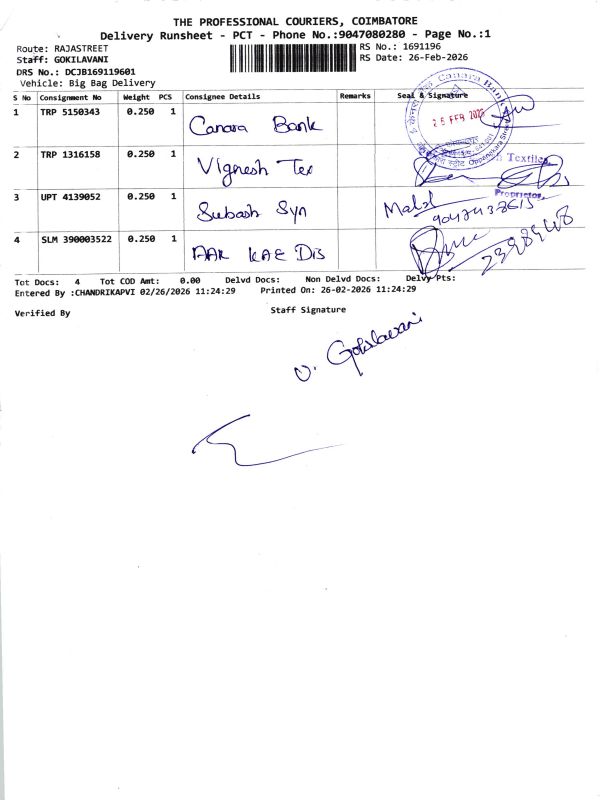 THE PROFESSIONAL COURIERS, COIMBATORE
Delivery Runsheet - PCT - Phone No.:9047080280 - Page No.:1
Route: RAJASTREET
Staff: GOKILAVANI
DRS No.: DCJB169119601
Vehicle: Big Bag Delivery
RS No.: 1691196
RS Date: 26-Feb-2026
S No Consignment No Weight PCS Consignee Details Remarks Seal & Signature
1 TRP 5150343 0.250 1 Canara Bank
Canara Bank
FEB 2026
2 TRP 1316158 0.250 1 Vignesh Tex
Textiles
Proprietor
3 UPT 4139052 0.250 1 Subash Syn
4 SLM 390003522 0.250 1 AAR KAE Dis
Tot Docs: 4 Tot COD Amt: 0.00 Delvd Docs: Non Delvd Docs: Delvy Pts:
Entered By :CHANDRIKAPVI 02/26/2026 11:24:29 Printed On: 26-02-2026 11:24:29
Verified By Staff Signature
V. Gokilavani